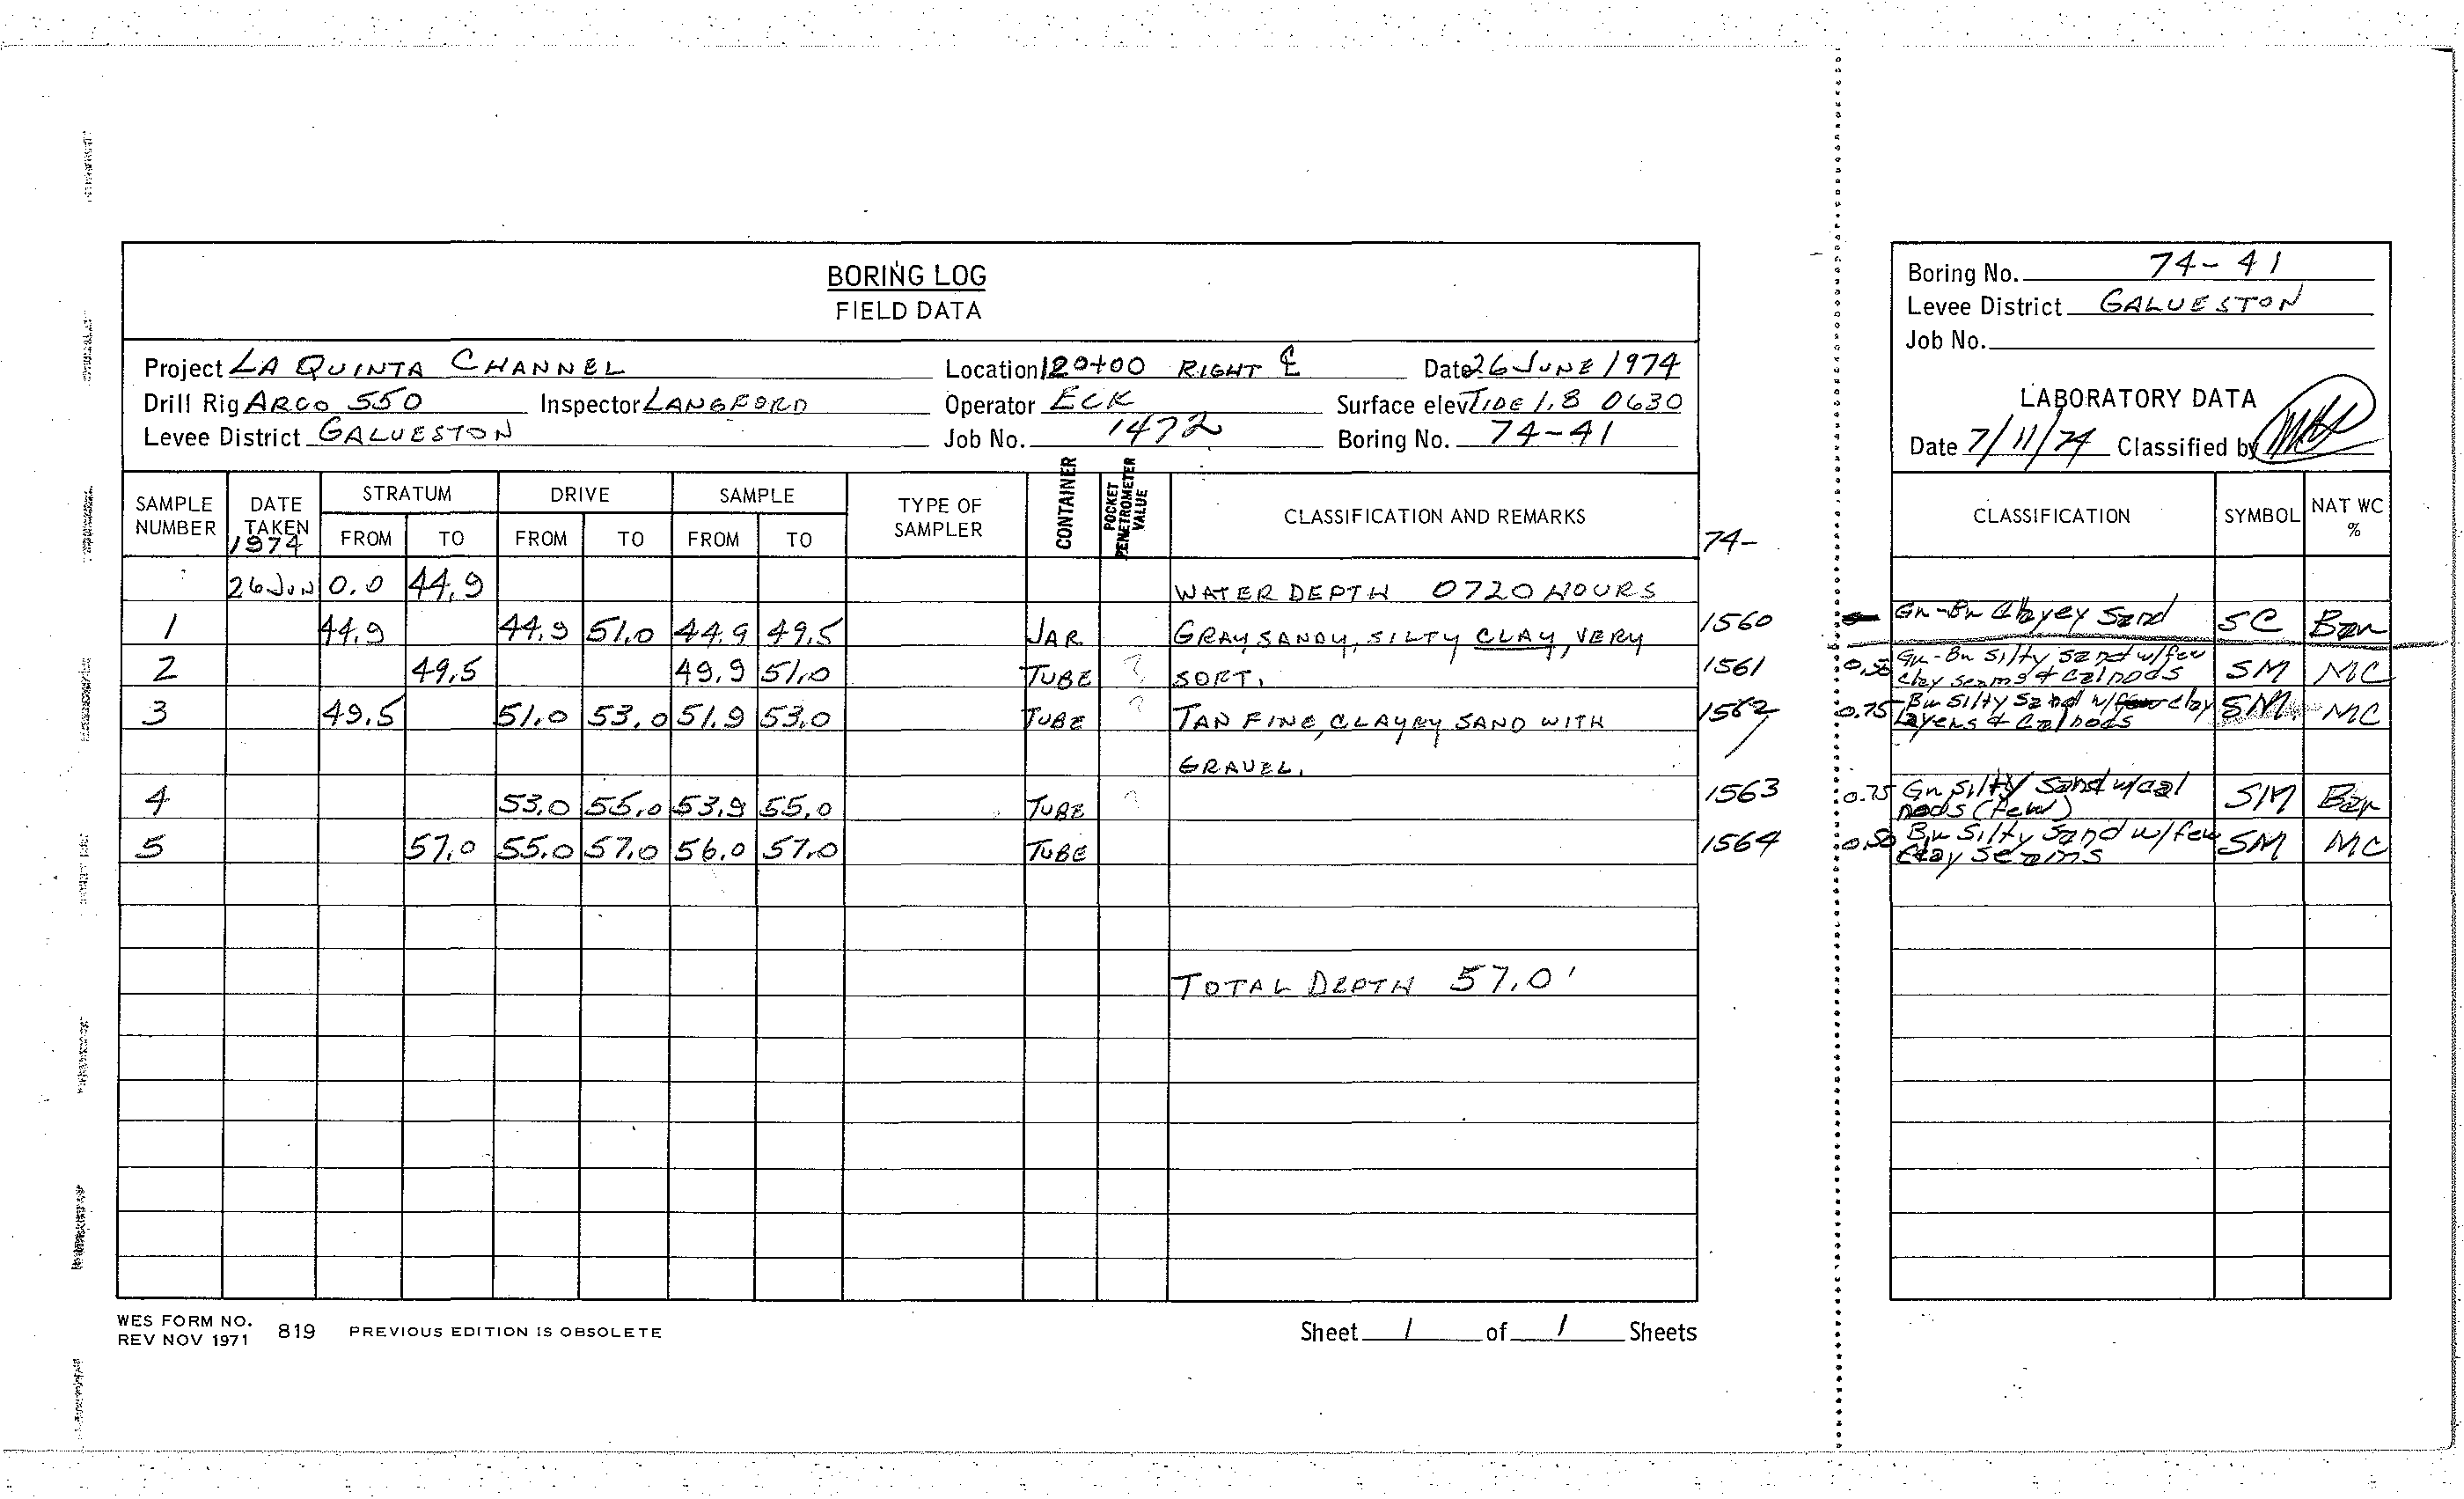 BORING LOG
FIELD DATA
Project LA QUINTA CHANNEL Location 120+00 RIGHT ℄ Date 26 JUNE 1974
Drill Rig ARCO 550 Inspector LANGFORD Operator ECK Surface elev TIDE 1.8 0630
Levee District GALVESTON Job No. 1472 Boring No. 74-41
SAMPLE NUMBER DATE TAKEN 1974 STRATUM FROM TO DRIVE FROM TO SAMPLE FROM TO TYPE OF SAMPLER CONTAINER POCKET PENETROMETER VALUE CLASSIFICATION AND REMARKS 74-
26 JUN 0.0 44.9 WATER DEPTH 0720 HOURS
1 44.9 44.9 51.0 44.9 49.5 JAR GRAY SANDY, SILTY CLAY, VERY 1560
2 49.5 49.9 51.0 TUBE ? SOFT. 1561
3 49.5 51.0 53.0 51.9 53.0 TUBE ? TAN FINE, CLAYEY SAND WITH 1562
GRAVEL.
4 53.0 55.0 53.9 55.0 TUBE ? 1563
5 57.0 55.0 57.0 56.0 57.0 TUBE 1564
TOTAL DEPTH 57.0'
WES FORM NO. 819 PREVIOUS EDITION IS OBSOLETE
REV NOV 1971
Sheet 1 of 1 Sheets
Boring No. 74-41
Levee District GALVESTON
Job No.
LABORATORY DATA
Date 7/11/74 Classified by
CLASSIFICATION SYMBOL NAT WC %
Gn-Bn Clayey Sand SC Ban
0.50 Gn-Bn Silty sand w/few
clay seams & cal nods SM MC
0.75 Bn Silty Sand w/ clay
layers & cal nods SM MC
0.75 Gn Silty Sand w/cal
nods (few) SM Ban
0.50 Bn Silty Sand w/few
clay seams SM MC